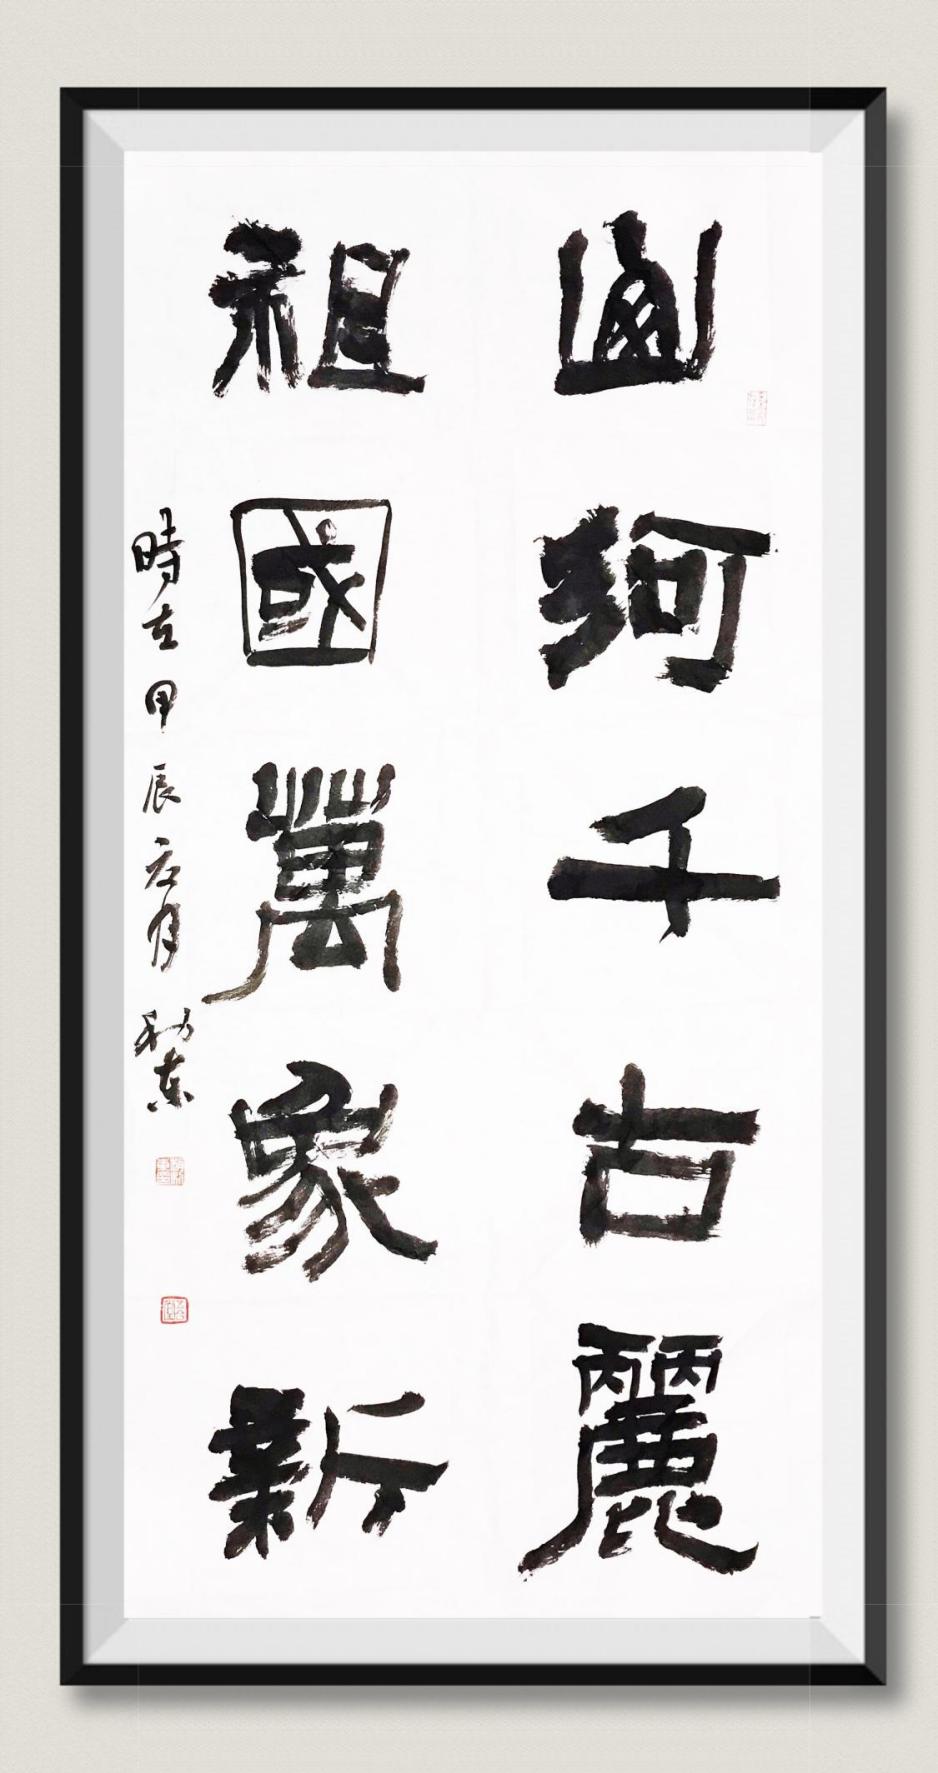 山河千古麗
祖國萬象新
時在甲辰月